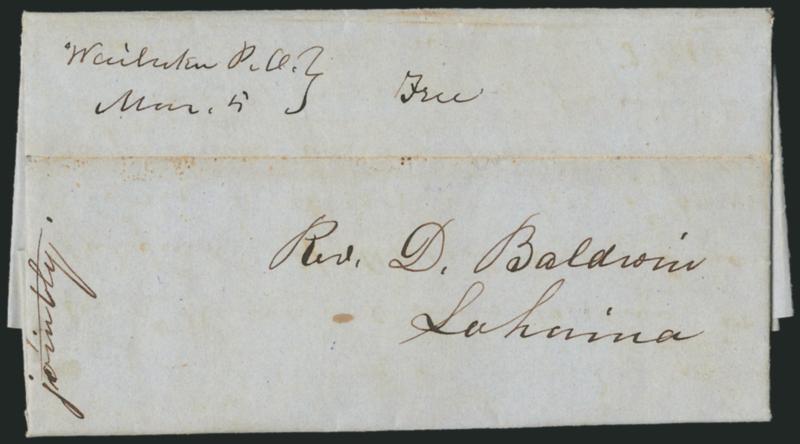 Wailuku P.O.}
Mar. 5
Free
Rev. D. Baldwin
Lahaina
jointly.